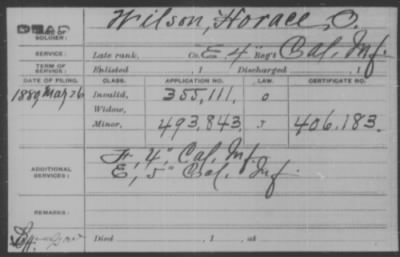 DEAD
NAME OF SOLDIER: Wilson, Horace, C.
SERVICE: Late rank, Co. E, 4" Reg't Cal, Inf.
TERM OF SERVICE: Enlisted , 1 Discharged , 1
DATE OF FILING. CLASS. APPLICATION NO. LAW. CERTIFICATE NO.
1889 Mar 26 Invalid, 355,111. 0
Widow,
Minor, 493,843. J 406,183.
ADDITIONAL SERVICES: F, 4" Cal, Inf.
E, 5" Cal. Inf.
REMARKS:
Died , 1 , at